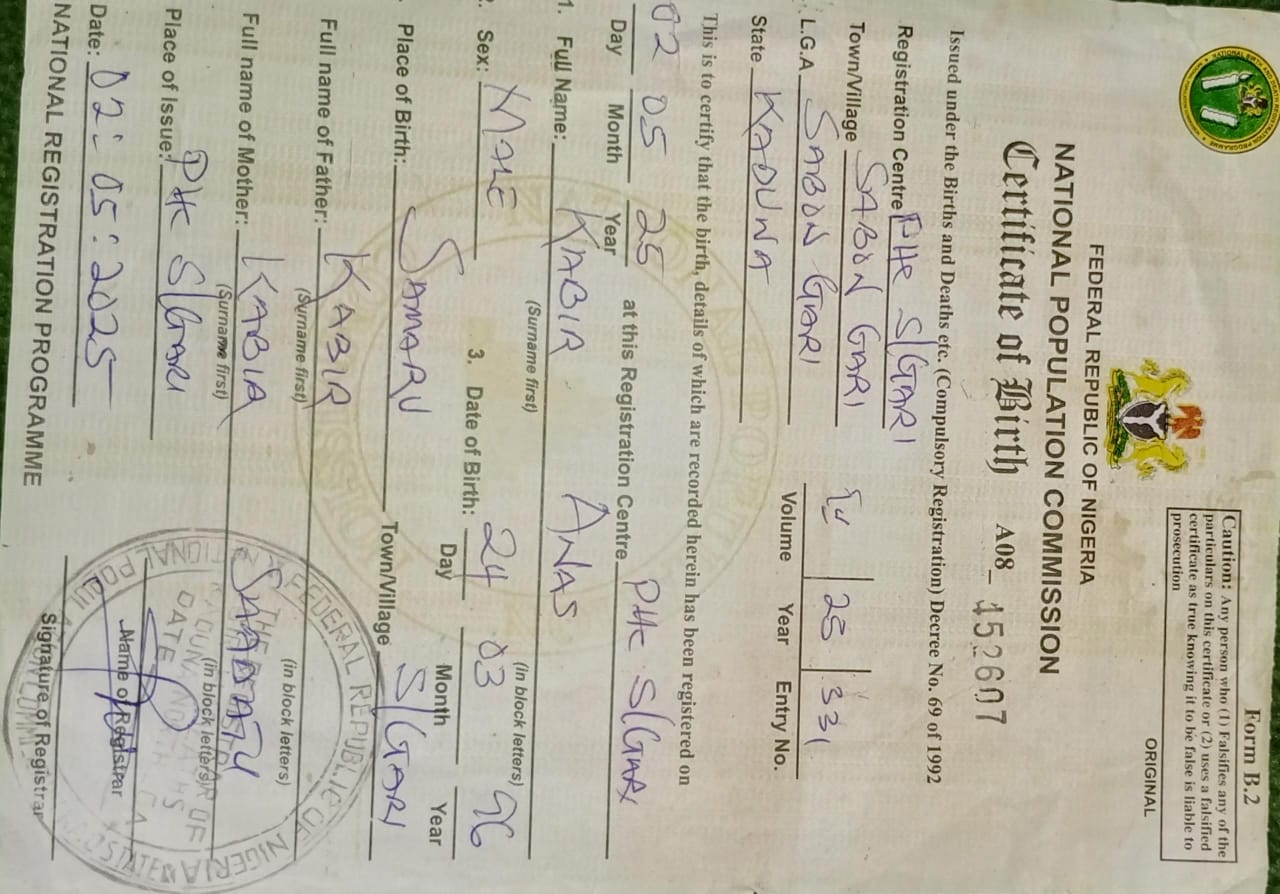 Form B.2
ORIGINAL
Caution: Any person who (1) Falsifies any of the
particulars on this certificate or (2) uses a falsified
certificate as true knowing it to be false is liable to
prosecution
FEDERAL REPUBLIC OF NIGERIA
NATIONAL POPULATION COMMISSION
Certificate of Birth A08_ 452607
Issued under the Births and Deaths etc. (Compulsory Registration) Decree No. 69 of 1992
Registration Centre PHC S/GARI
Town/Village SABON GARI
L.G.A SABON GARI
State KADUNA
25 331
Volume Year Entry No.
This is to certify that the birth, details of which are recorded herein has been registered on
02 05 25 at this Registration Centre PHC S/GARI
Day Month Year
1. Full Name: KABIR ANAS
(Surname first) (In block letters)
2. Sex: MALE 3. Date of Birth: 24 03 96
Day Month Year
Place of Birth: SAMARU Town/Village S/GARI
Full name of Father: KABIR
(Surname first) (In block letters)
Full name of Mother: KABIR SAADATU
(Surname first) (In block letters)
Place of Issue: PHC S/GARI
Name of Registrar
Date: 02:05:2025
Signature of Registrar
NATIONAL REGISTRATION PROGRAMME
FEDERAL REPUBLIC OF NIGERIA
DATE